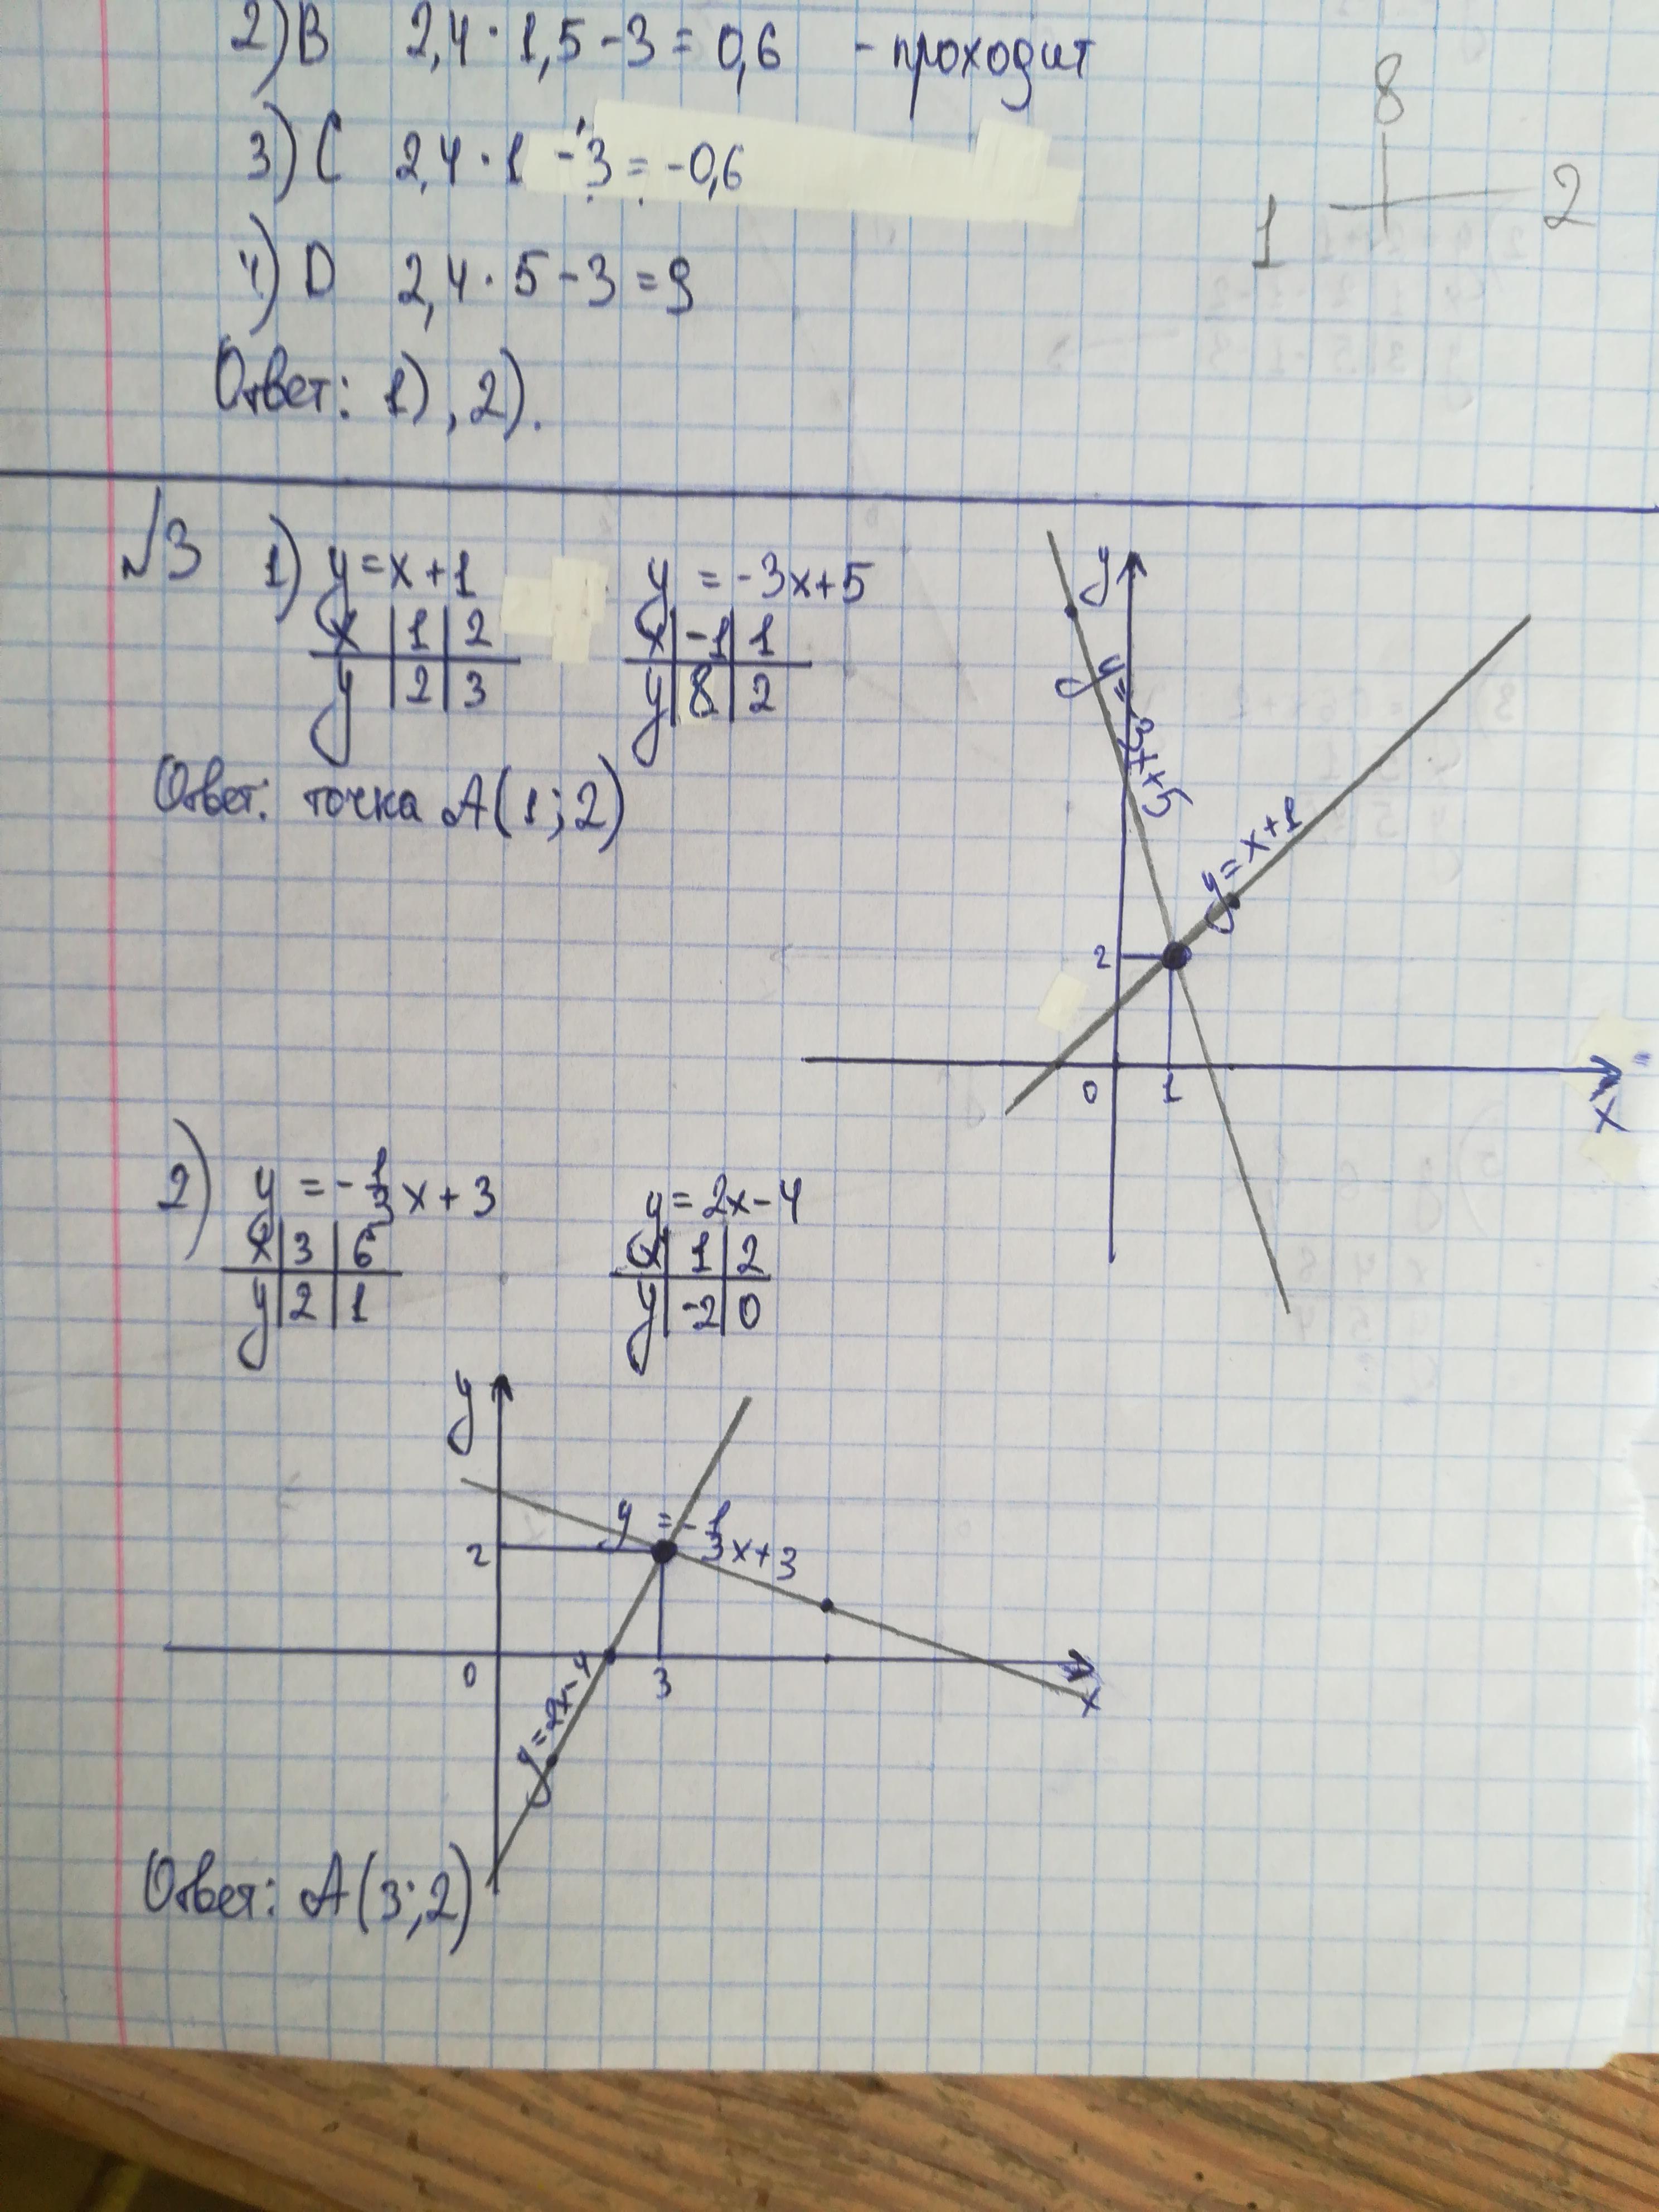 2) B 2,4 · 1,5 - 3 = 0,6 - проходит
3) C 2,4 · 1 - 3 = -0,6
4) D 2,4 · 5 - 3 = 9
Ответ: 1), 2).
8
1 2
№3 1) y = x + 1 y = -3x + 5
x | 1 | 2 x | -1 | 1
y | 2 | 3 y | 8 | 2
Ответ: точка A(1; 2)
y
y = -3x + 5
y = x + 1
2
0 1 x
2) y = -1/3 x + 3 y = 2x - 4
x | 3 | 6 x | 1 | 2
y | 2 | 1 y | -2 | 0
y
y = -1/3 x + 3
2
0 3 x
y = 2x - 4
Ответ: A(3; 2)